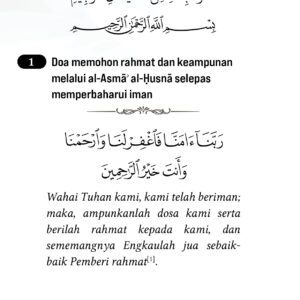 بِسْمِ اللَّهِ الرَّحْمَٰنِ الرَّحِيمِ
1 Doa memohon rahmat dan keampunan
melalui al-Asmā’ al-Ḥusnā selepas
memperbaharui iman
رَبَّنَآ ءَامَنَّا فَٱغْفِرْ لَنَا وَٱرْحَمْنَا
وَأَنتَ خَيْرُ ٱلرَّٰحِمِينَ
Wahai Tuhan kami, kami telah beriman;
maka, ampunkanlah dosa kami serta
berilah rahmat kepada kami, dan
sememangnya Engkaulah jua sebaik-
baik Pemberi rahmat[1].